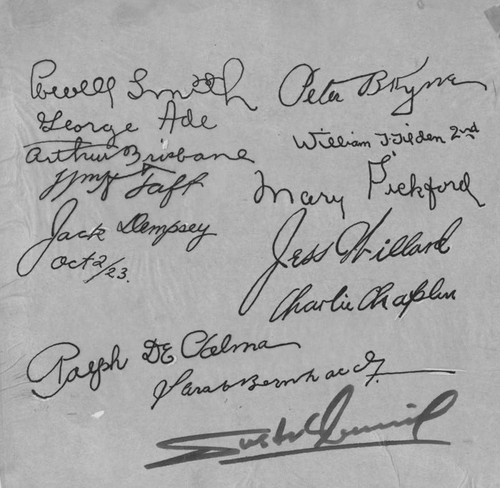 Smith
George Ade
Arthur Brisbane
Wm H Taft
Jack Dempsey
Oct 2/23.
Peter B Kyne
William T Tilden 2nd
Mary Pickford
Jess Willard
Charlie Chaplin
Ralph De Palma
Sarah Bernhardt